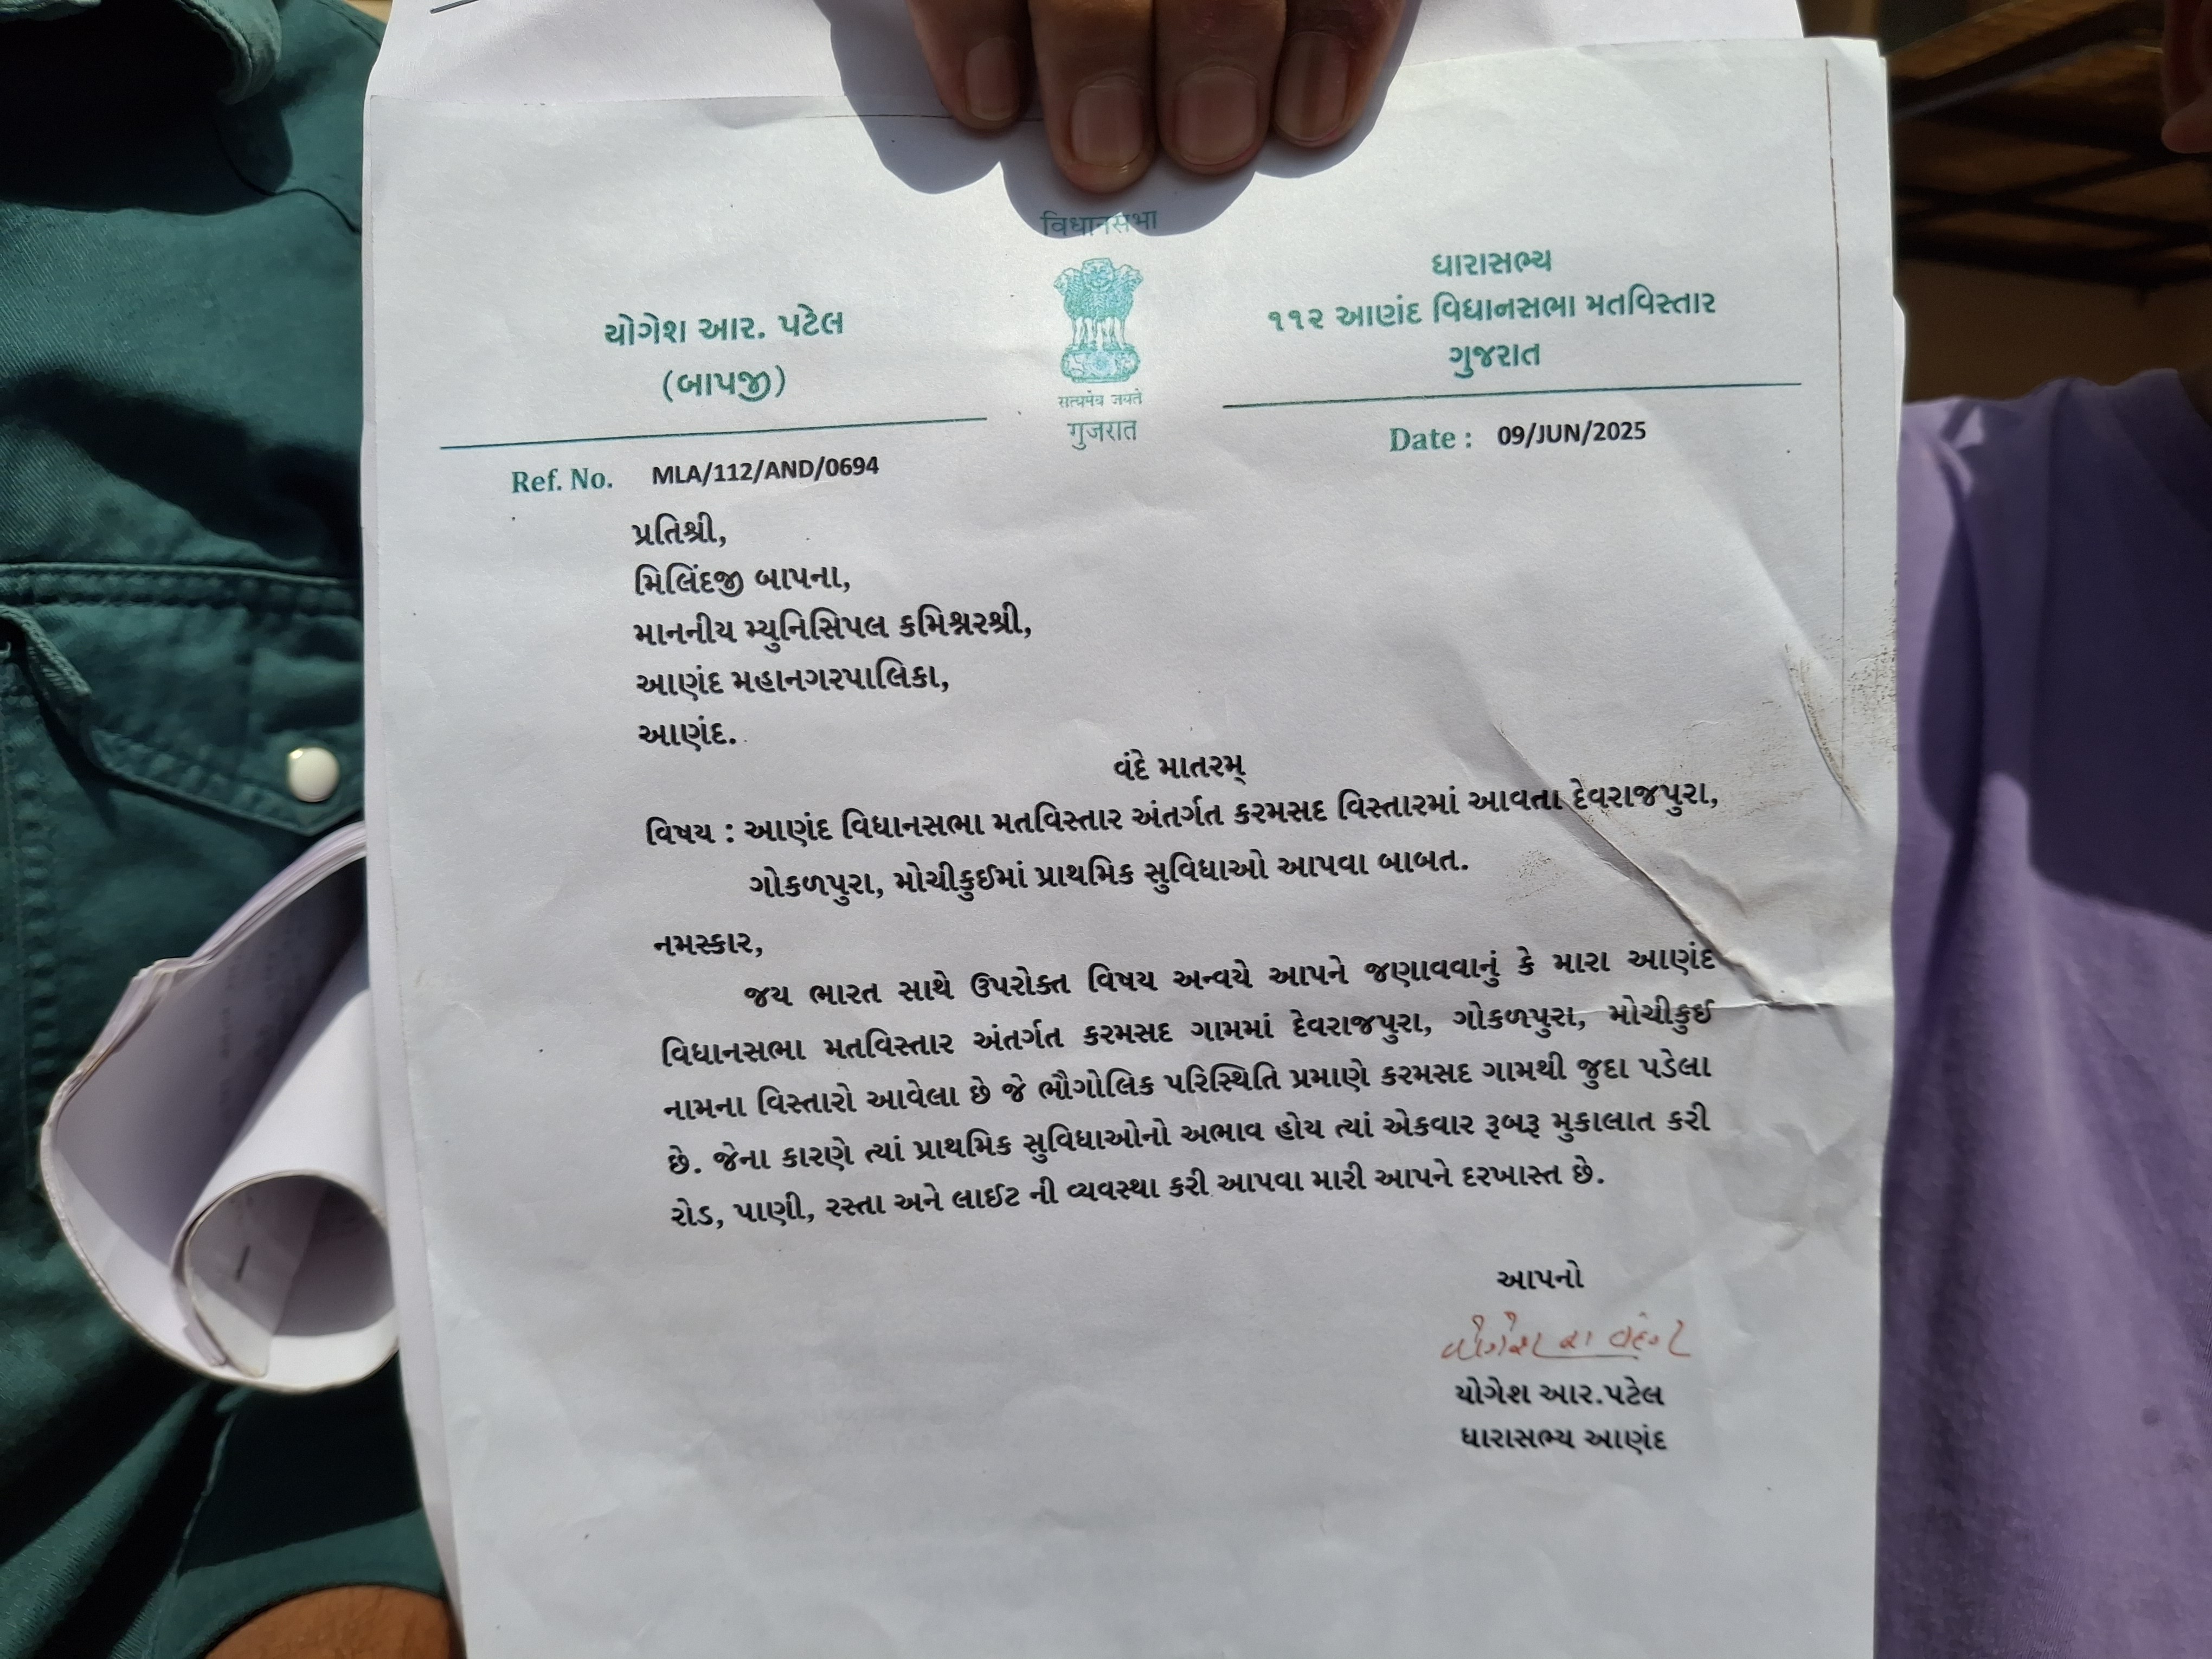 विधानसभा
યોગેશ આર. પટેલ
(બાપજી)
सत्यमेव जयते
गुजरात
ધારાસભ્ય
૧૧૨ આણંદ વિધાનસભા મતવિસ્તાર
ગુજરાત
Ref. No. MLA/112/AND/0694
Date : 09/JUN/2025
પ્રતિશ્રી,
મિલિંદજી બાપના,
માનનીય મ્યુનિસિપલ કમિશ્નરશ્રી,
આણંદ મહાનગરપાલિકા,
આણંદ.
વંદે માતરમ્
વિષય : આણંદ વિધાનસભા મતવિસ્તાર અંતર્ગત કરમસદ વિસ્તારમાં આવતા દેવરાજપુરા,
ગોકળપુરા, મોચીકુઈમાં પ્રાથમિક સુવિધાઓ આપવા બાબત.
નમસ્કાર,
જય ભારત સાથે ઉપરોક્ત વિષય અન્વયે આપને જણાવવાનું કે મારા આણંદ
વિધાનસભા મતવિસ્તાર અંતર્ગત કરમસદ ગામમાં દેવરાજપુરા, ગોકળપુરા, મોચીકુઈ
નામના વિસ્તારો આવેલા છે જે ભૌગોલિક પરિસ્થિતિ પ્રમાણે કરમસદ ગામથી જુદા પડેલા
છે. જેના કારણે ત્યાં પ્રાથમિક સુવિધાઓનો અભાવ હોય ત્યાં એકવાર રૂબરૂ મુકાલાત કરી
રોડ, પાણી, રસ્તા અને લાઈટ ની વ્યવસ્થા કરી આપવા મારી આપને દરખાસ્ત છે.
આપનો
યોગેશ આર.પટેલ
ધારાસભ્ય આણંદ